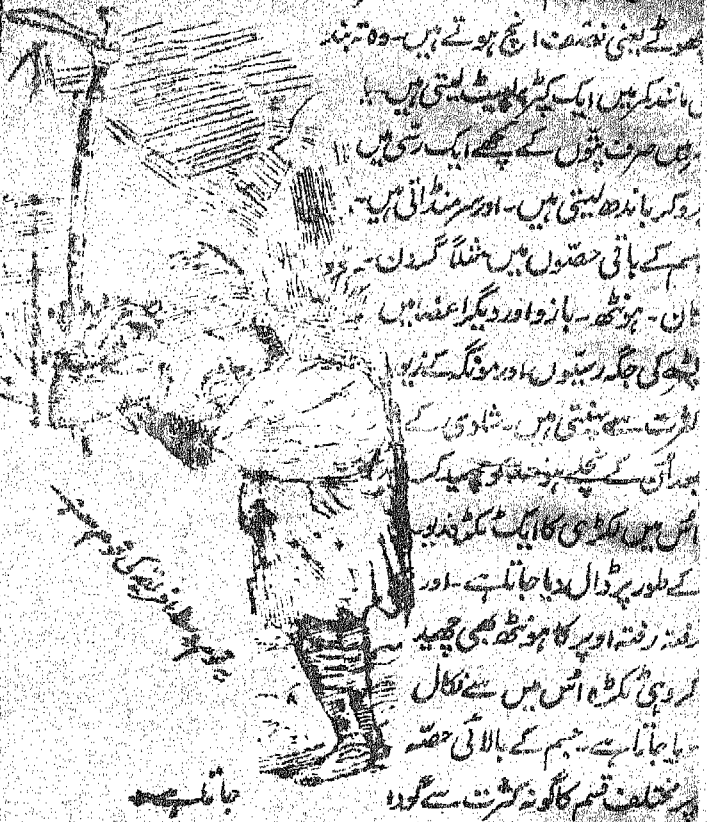 چھوٹے یعنی نصف انچ ہوتے ہیں۔ وہ تہ بند
کی مانند کمر میں ایک کپڑا لپیٹ لیتی ہیں۔ یا
صرف پتّوں کے گچھے ایک رسّی میں
پرو کر باندھ لیتی ہیں۔ اور سر منڈاتی ہیں۔
جسم کے باقی حصّوں میں مثلاً گردن۔
کان۔ ہونٹھ۔ بازو اور دیگر اعضا میں
کی جگہ رسیّوں اور مونگے کے زیور
کثرت سے پہنتی ہیں۔ شادی کے
بعد اُن کے نچلے ہونٹھ کو چھید کر
اُس میں لکڑی کا ایک ٹکڑہ زیور
کے طور پر ڈال دیا جاتا ہے۔ اور
رفتہ رفتہ اوپر کا ہونٹھ بھی چھید
کر وہی ٹکڑہ اُس میں سے نکال
دیا جاتا ہے۔ جسم کے بالائی حصّہ
پر مختلف قسم کا گونہ کثرت سے گودا
جاتا ہے۔